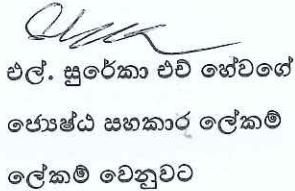 එල්. සුරේකා එච් හේවගේ
ජ්‍යෙෂ්ඨ සහකාර ලේකම්
ලේකම් වෙනුවට